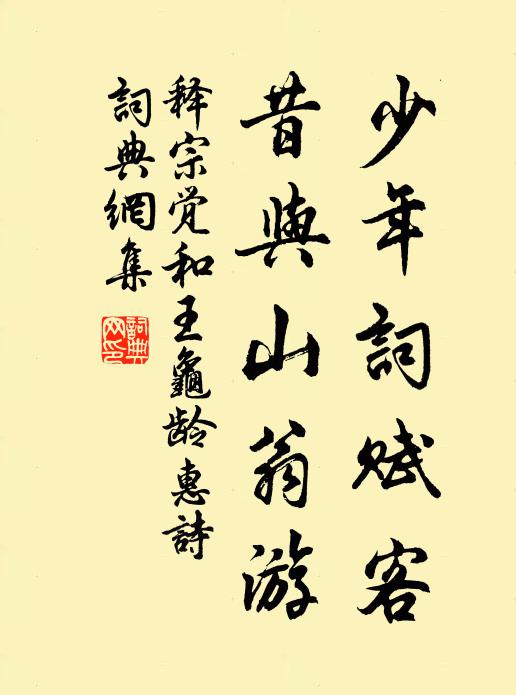 少年詞赋客
昔與山翁游
释宗觉和王龜龄惠詩
詞典網集
詞典网印